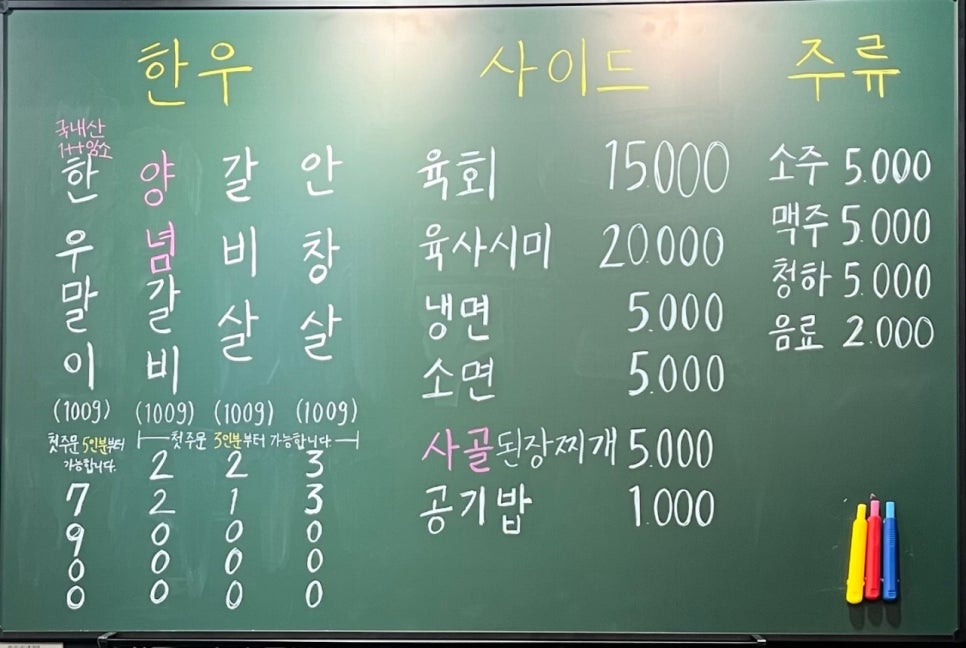 한우
국내산
1++암소
한우말이
(100g)
첫주문 5인분부터
가능합니다.
7900
양념갈비
(100g)
22000
갈비살
(100g)
21000
안창살
(100g)
33000
첫주문 3인분부터 가능합니다
사이드
육회 15.000
육사시미 20.000
냉면 5.000
소면 5.000
사골된장찌개 5.000
공기밥 1.000
주류
소주 5.000
맥주 5.000
청하 5.000
음료 2.000